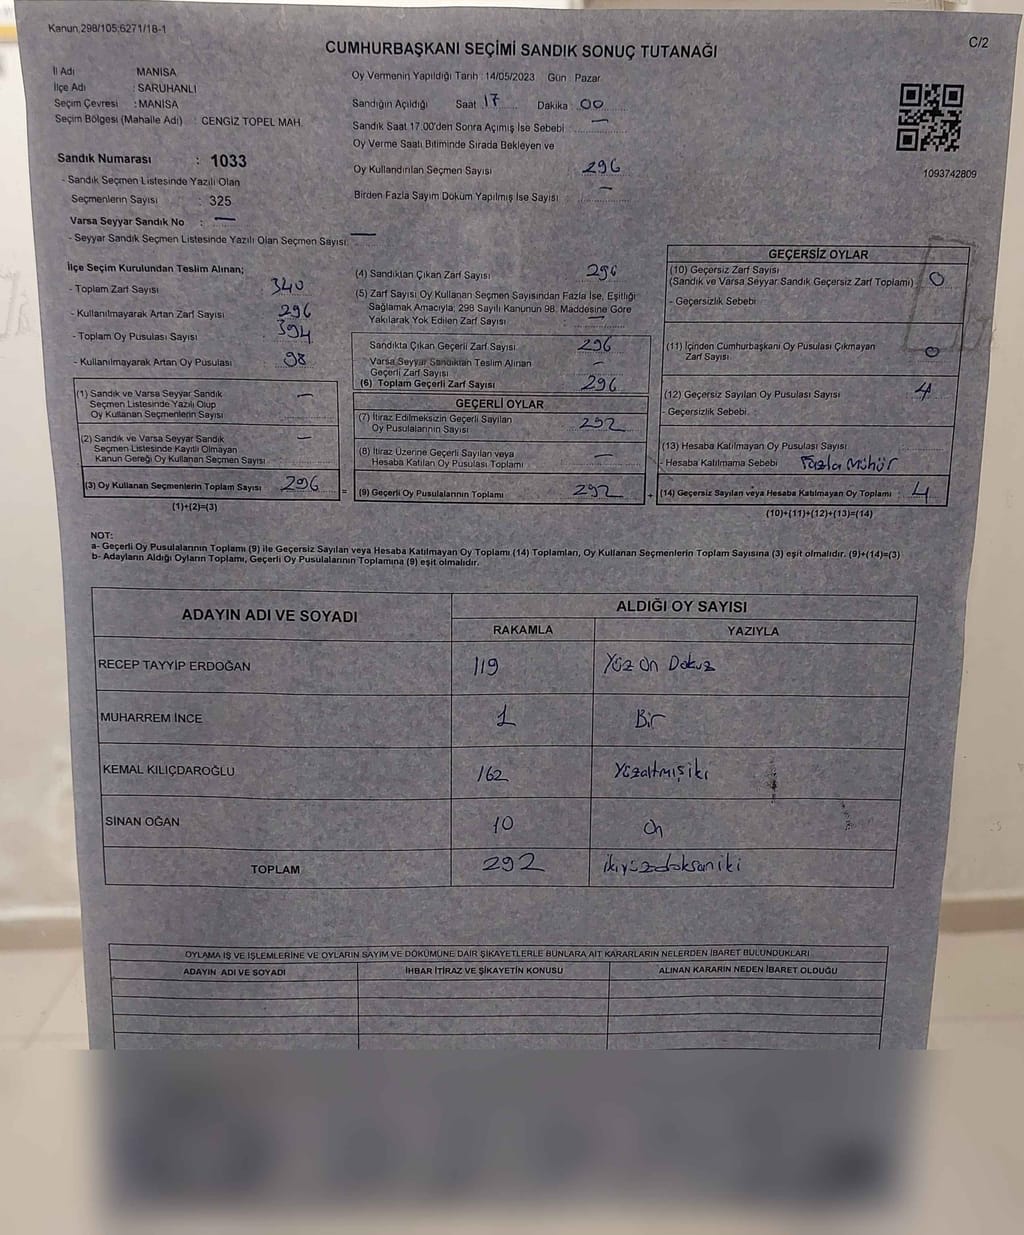 Kanun,298/105;6271/18-1
C/2
CUMHURBAŞKANI SEÇİMİ SANDIK SONUÇ TUTANAĞI
İl Adı MANİSA
İlçe Adı : SARUHANLI
Seçim Çevresi : MANİSA
Seçim Bölgesi (Mahalle Adı) : CENGİZ TOPEL MAH.
Oy Vermenin Yapıldığı Tarih : 14/05/2023 Gün : Pazar
Sandığın Açıldığı Saat 17 Dakika : 00
Sandık Saat 17.00'den Sonra Açımış İse Sebebi : —
Oy Verme Saati Bitiminde Sırada Bekleyen ve
Oy Kullandırılan Seçmen Sayısı 296
Birden Fazla Sayım Döküm Yapılmış İse Sayısı : —
1093742809
Sandık Numarası : 1033
- Sandık Seçmen Listesinde Yazılı Olan
Seçmenlerin Sayısı : 325
Varsa Seyyar Sandık No : —
- Seyyar Sandık Seçmen Listesinde Yazılı Olan Seçmen Sayısı: —
İlçe Seçim Kurulundan Teslim Alınan;
- Toplam Zarf Sayısı 340
- Kullanılmayarak Artan Zarf Sayısı : 296
- Toplam Oy Pusulası Sayısı : 394
- Kullanılmayarak Artan Oy Pusulası : 98
(1) Sandık ve Varsa Seyyar Sandık —
Seçmen Listesinde Yazılı Olup
Oy Kullanan Seçmenlerin Sayısı
(2) Sandık ve Varsa Seyyar Sandık —
Seçmen Listesinde Kayıtlı Olmayan
Kanun Gereği Oy Kullanan Seçmen Sayısı
(3) Oy Kullanan Seçmenlerin Toplam Sayısı 296
(1)+(2)=(3)
(4) Sandıktan Çıkan Zarf Sayısı 296
(5) Zarf Sayısı Oy Kullanan Seçmen Sayısından Fazla İse, Eşitliği
Sağlamak Amacıyla; 298 Sayılı Kanunun 98. Maddesine Göre
Yakılarak Yok Edilen Zarf Sayısı : —
Sandıkta Çıkan Geçerli Zarf Sayısı 296
Varsa Seyyar Sandıktan Teslim Alınan
Geçerli Zarf Sayısı —
(6) Toplam Geçerli Zarf Sayısı 296
GEÇERLİ OYLAR
(7) İtiraz Edilmeksizin Geçerli Sayılan
Oy Pusulalarının Sayısı : 292
(8) İtiraz Üzerine Geçerli Sayılan veya
Hesaba Katılan Oy Pusulası Toplamı : —
= (9) Geçerli Oy Pusulalarının Toplamı 292
GEÇERSİZ OYLAR
(10) Geçersiz Zarf Sayısı
(Sandık ve Varsa Seyyar Sandık Geçersiz Zarf Toplamı) : 0
- Geçersizlik Sebebi :
(11) İçinden Cumhurbaşkanı Oy Pusulası Çıkmayan
Zarf Sayısı 0
(12) Geçersiz Sayılan Oy Pusulası Sayısı 4
- Geçersizlik Sebebi :
(13) Hesaba Katılmayan Oy Pusulası Sayısı
- Hesaba Katılmama Sebebi : Fazla Mühür
+ (14) Geçersiz Sayılan veya Hesaba Katılmayan Oy Toplamı : 4
(10)+(11)+(12)+(13)=(14)
NOT:
a- Geçerli Oy Pusulalarının Toplamı (9) ile Geçersiz Sayılan veya Hesaba Katılmayan Oy Toplamı (14) Toplamları, Oy Kullanan Seçmenlerin Toplam Sayısına (3) eşit olmalıdır. (9)+(14)=(3)
b- Adayların Aldığı Oyların Toplamı, Geçerli Oy Pusulalarının Toplamına (9) eşit olmalıdır.
ADAYIN ADI VE SOYADI ALDIĞI OY SAYISI
RAKAMLA YAZIYLA
RECEP TAYYİP ERDOĞAN 119 Yüz On Dokuz
MUHARREM İNCE 1 Bir
KEMAL KILIÇDAROĞLU 162 Yüzaltmışiki
SİNAN OĞAN 10 On
TOPLAM 292 ikiyüzdoksaniki
OYLAMA İŞ VE İŞLEMLERİNE VE OYLARIN SAYIM VE DÖKÜMÜNE DAİR ŞİKAYETLERLE BUNLARA AİT KARARLARIN NELERDEN İBARET BULUNDUKLARI
ADAYIN ADI VE SOYADI İHBAR İTİRAZ VE ŞİKAYETİN KONUSU ALINAN KARARIN NEDEN İBARET OLDUĞU